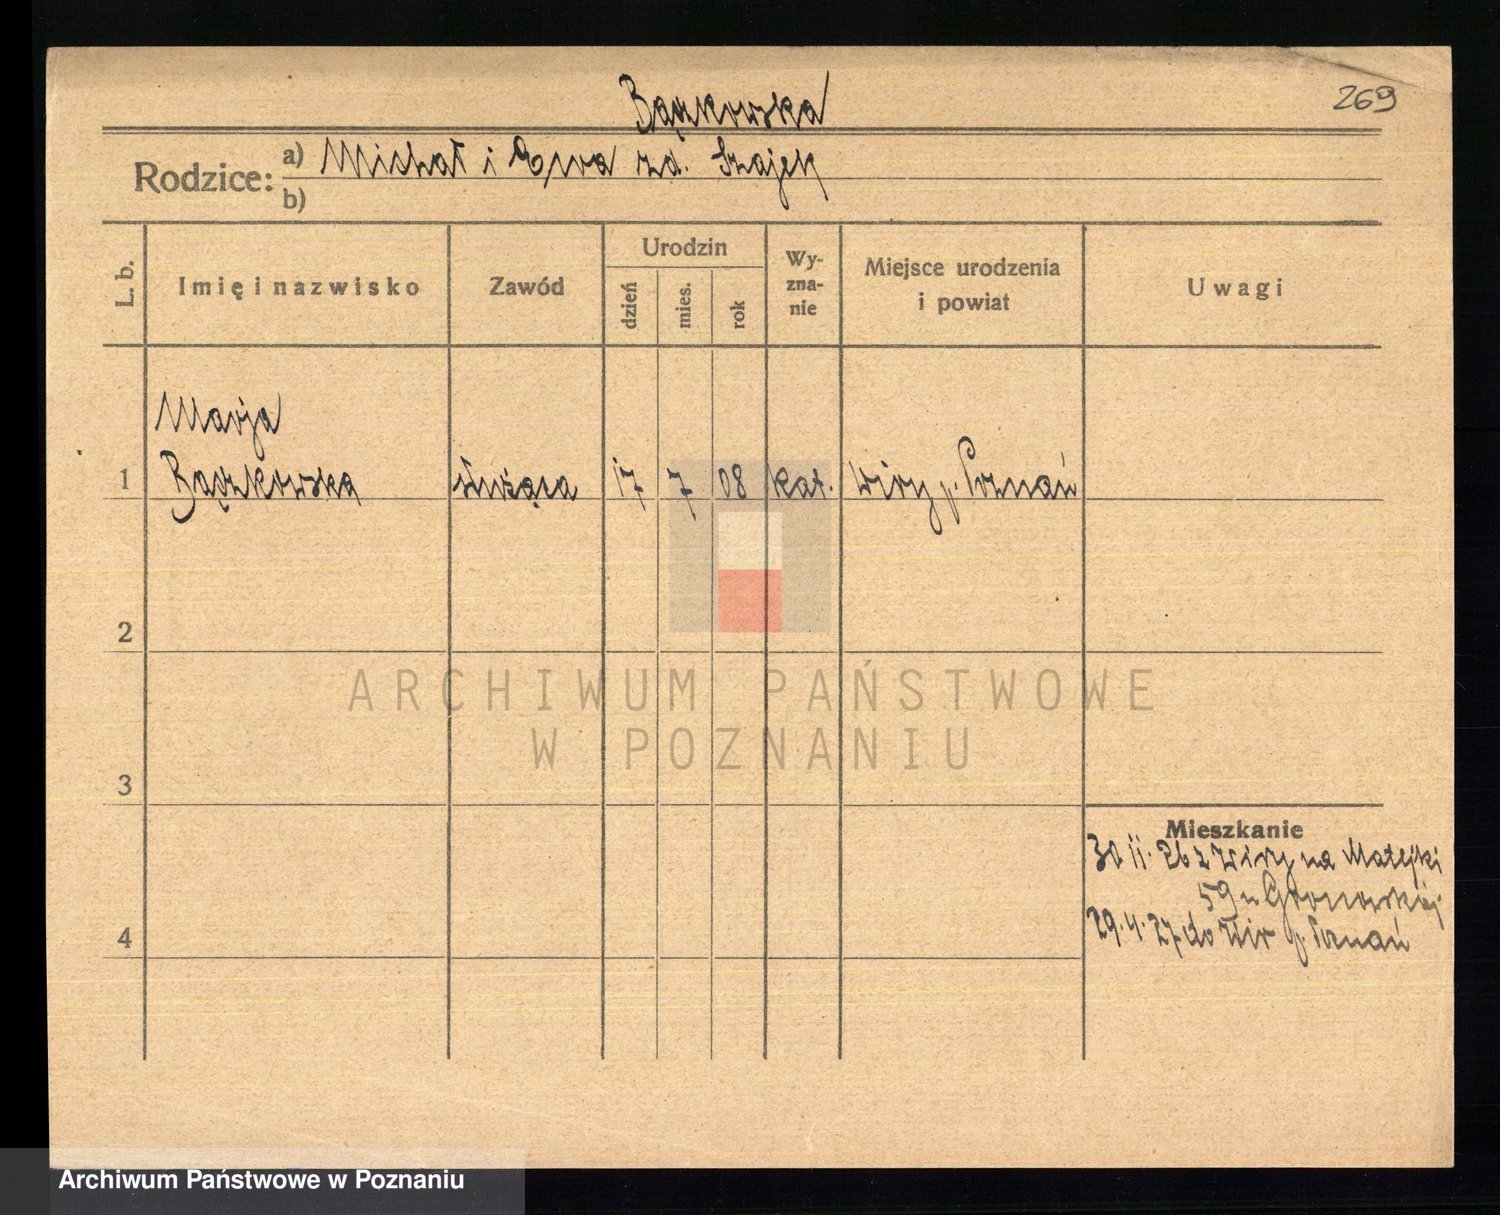 269
Bączkowska
Rodzice:
a) Michał i Ewa zd. Szajek
b)
L. b.
Imię i nazwisko
Zawód
Urodzin
dzień
mies.
rok
Wy-
zna-
nie
Miejsce urodzenia
i powiat
Uwagi
Marja
1 Bączkowska służąca 17 7 08 kat. Wiry p. Poznań
2
3
4
Mieszkanie
30 11. 26 z Wiry na Matejki
59 u Gronowskiej
29. 4. 27 do Wir p. Poznań
ARCHIWUM PAŃSTWOWE
W POZNANIU
Archiwum Państwowe w Poznaniu